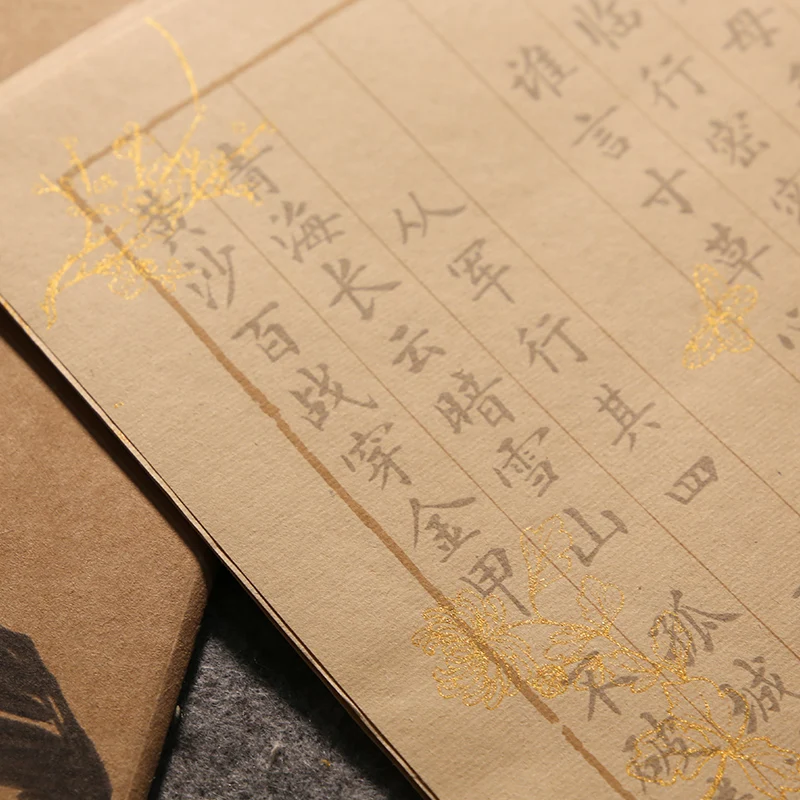 母
临行密密
谁言寸草心
从军行其四
青海长云暗雪山 孤城
黄沙百战穿金甲 不破